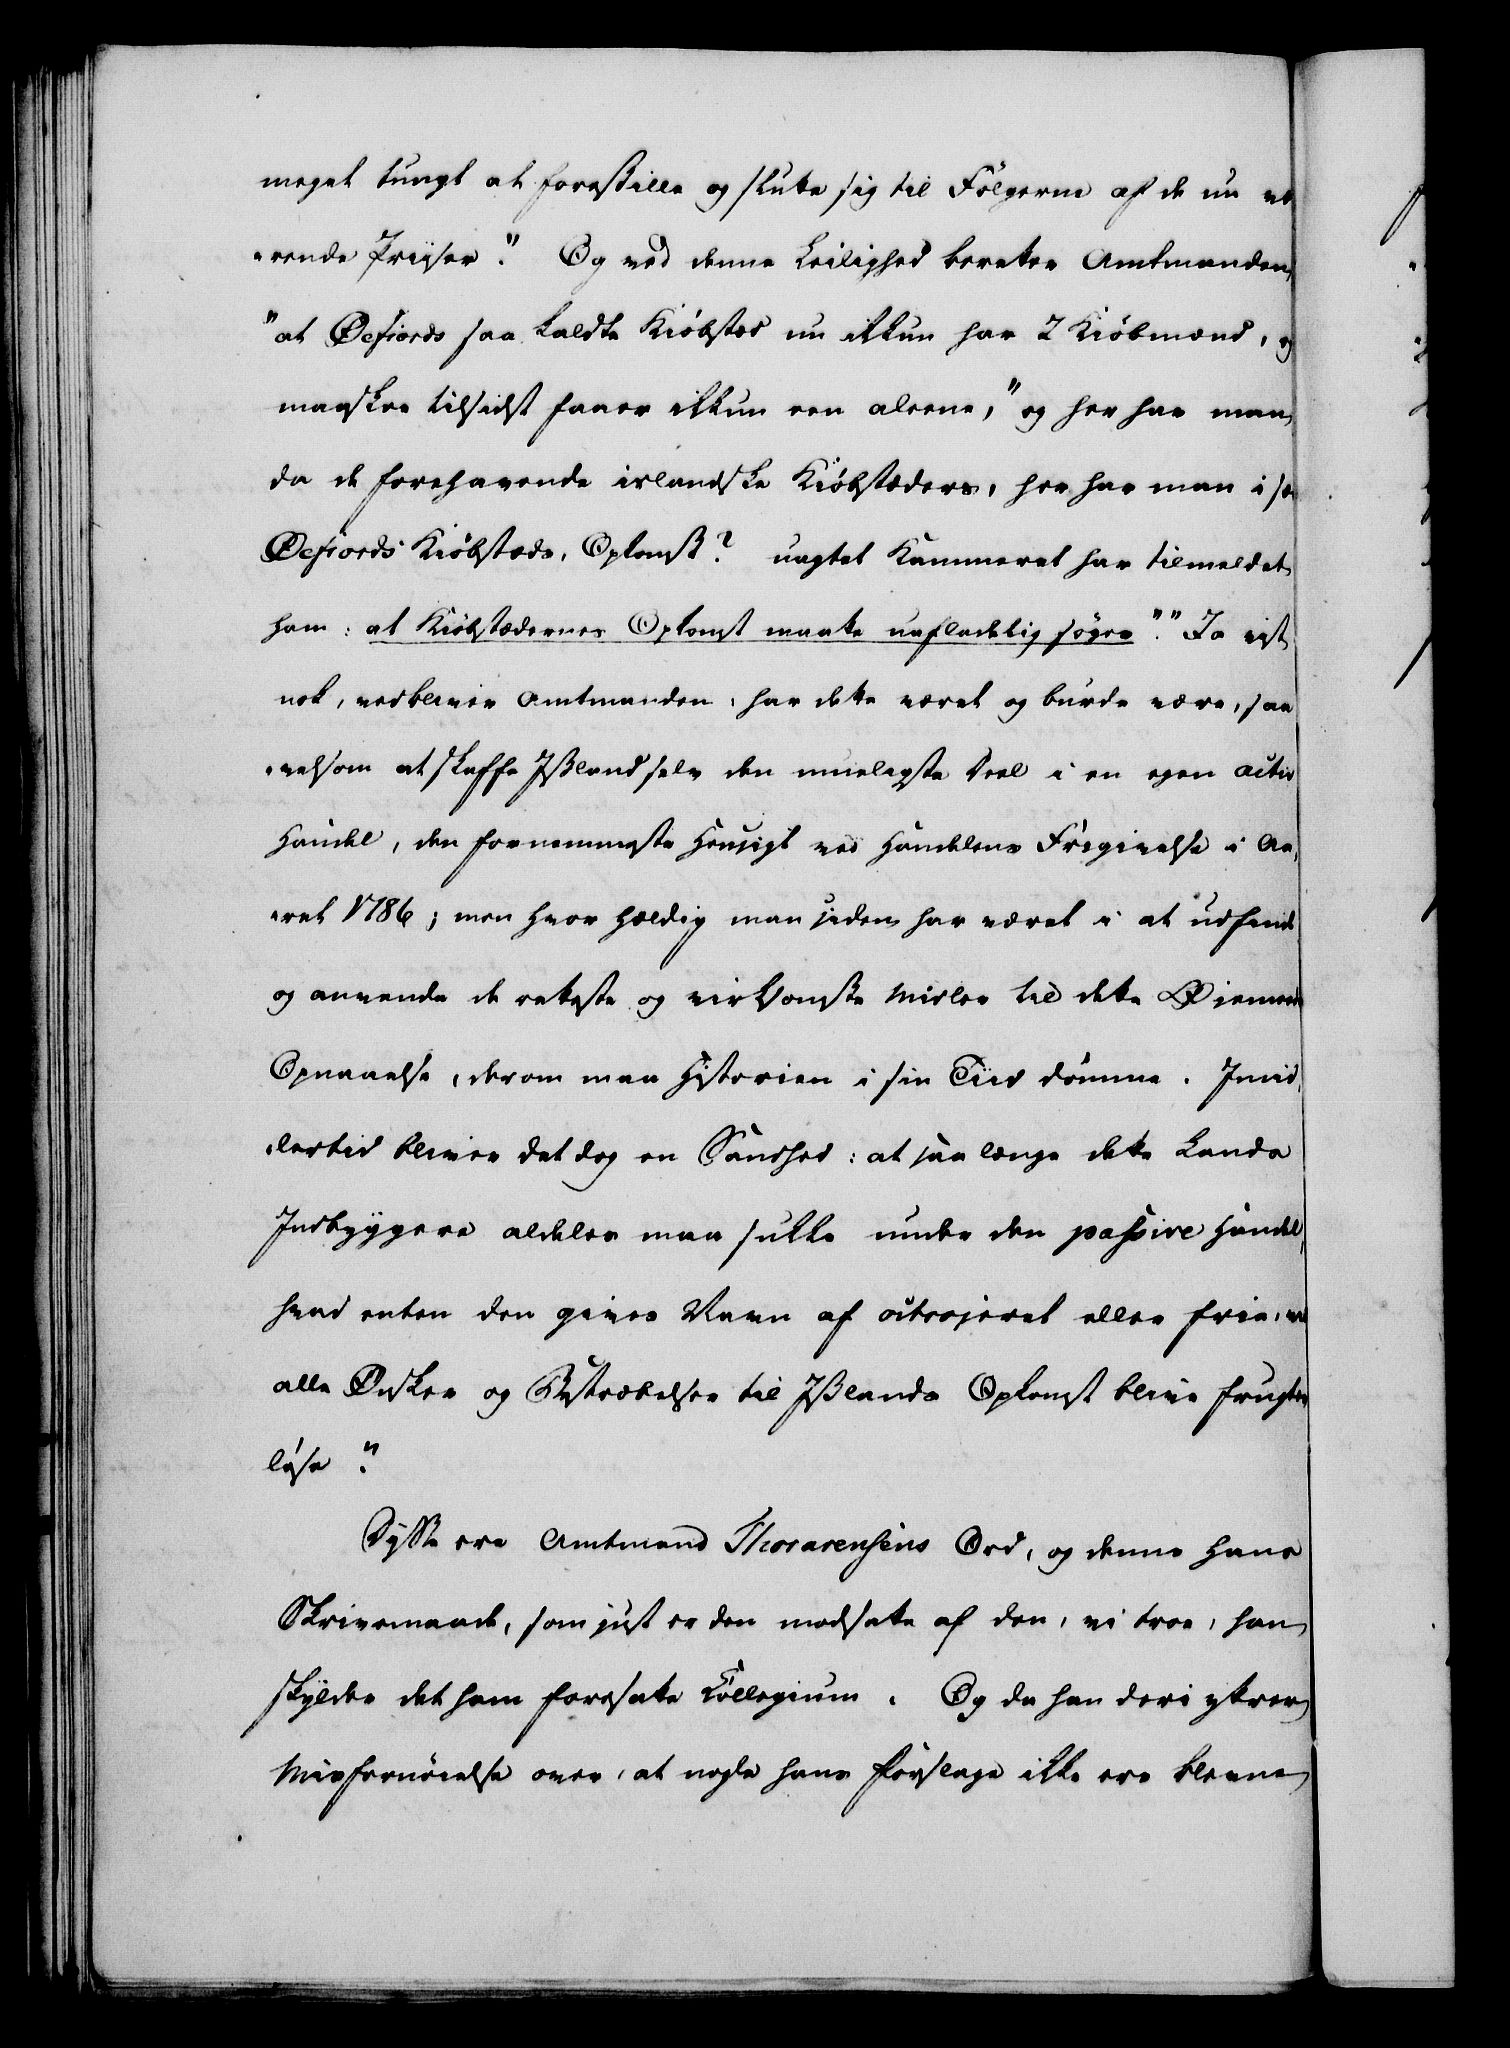 meget tungt at forestille og slutte sig til Følgerne af de nu væ
„rende Priiser." Og ved denne Leilighed beretter Amtmanden,
"at Øefiords saa kaldte Kiøbsted nu ikkun har 2 Kiøbmænd, og
maaskee tilsidst faaer ikkun een aleene," og her har man
da de forehavende islandske Kiøbstæders, her har man i sær
Øefiords Kiøbstæds, Opkomst? uagtet Kammeret har tilmeldet
ham: at Kiøbstædernes Opkomst maatte uafladelig søges"." Ja vist
nok, vedbliver Amtmanden, har dette været og burde være, saa
„velsom at skaffe Iisland selv den mueligste Deel i en egen activ
Handel, den fornemmeste Hensigt ved Handelens Frigivelse i Aa„
„ret 1786; men hvor heldig man siden har været i at udfinde
og anvende de retteste og virksomste Midler til dette Øiemeds
Opnaaelse, derom maa Historien i sin Tiid dømme. Imid„
„lertid bliver det dog en Sandhed: at saa længe dette Lands
Indbyggere aldeles maa sukke under den passive Handel,
hvad enten den gives Navn af octrojeret eller frie, vil
alle Ønsker og Bestræbelser til Iislands Opkomst blive frugtes
løse".
Disse ere Amtmand Thorarensens Ord, og denne hans
Skrivemaade, som just er den modsatte af den, vi troe, han
skylder det ham foresatte Collegium. Og da han deri yttrer
Misfornøielse over, at nogle hans Forslage ikke ere blevne